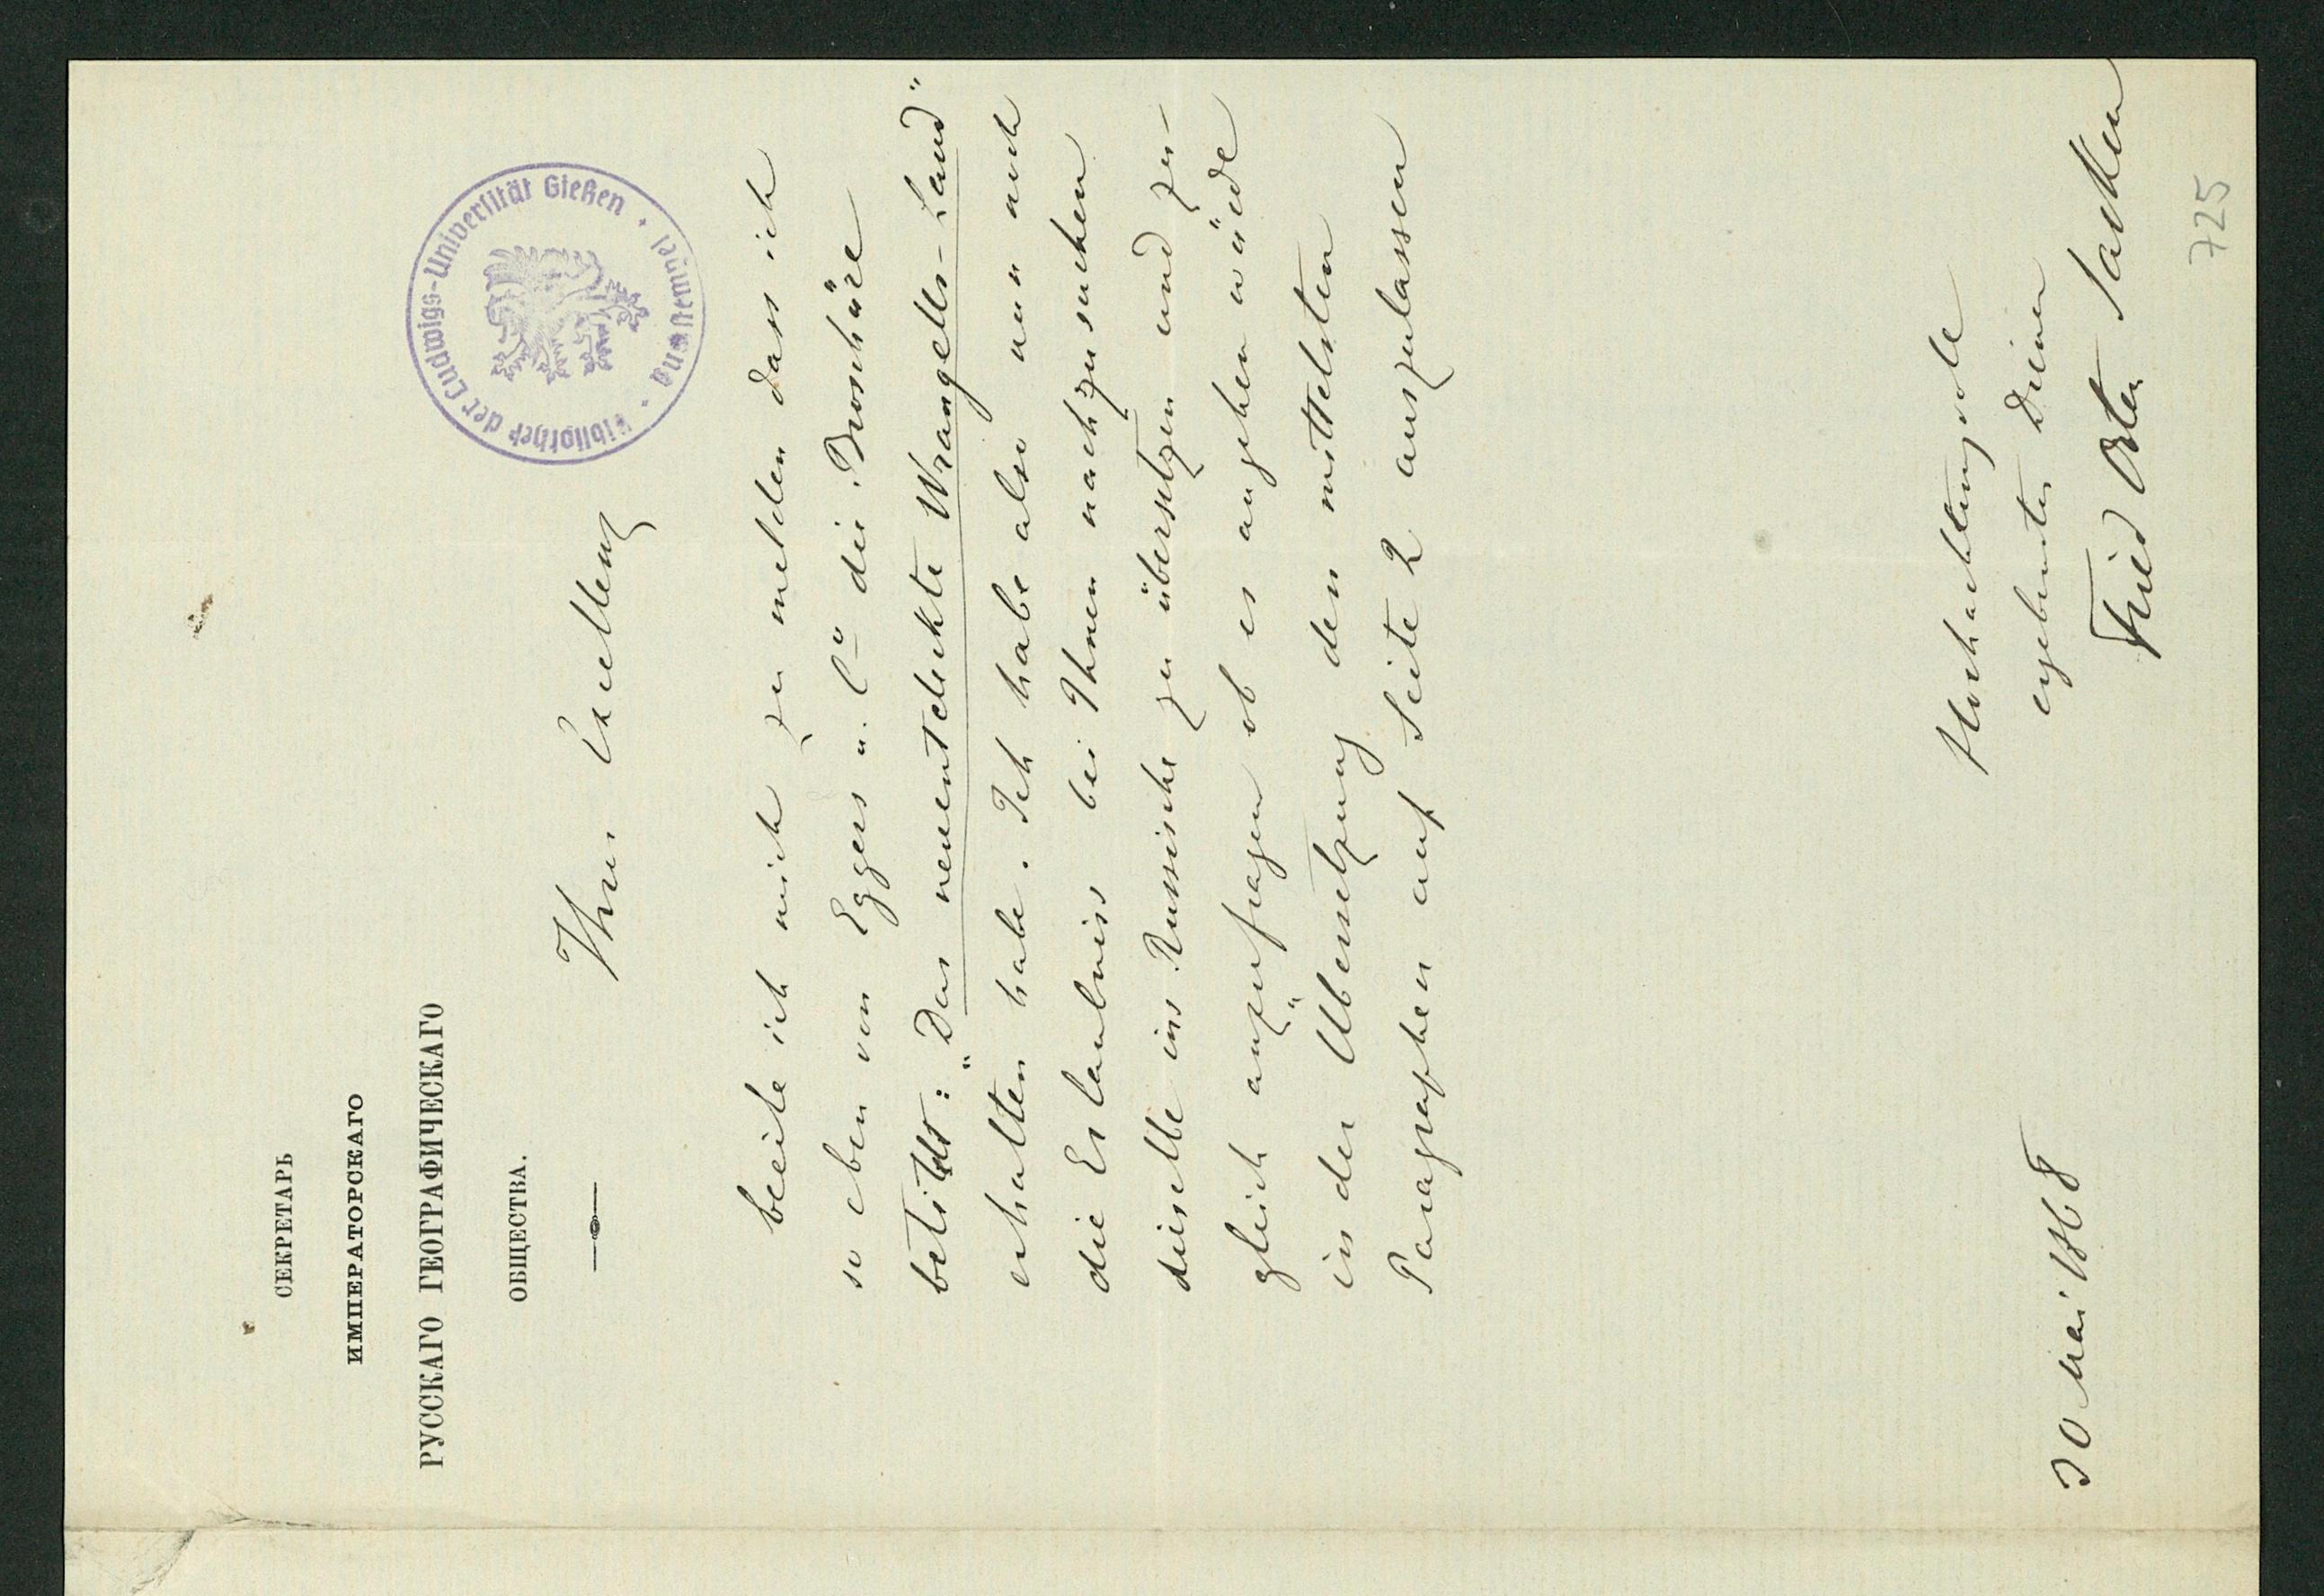 СЕКРЕТАРЬ
ИМПЕРАТОРСКАГО
РУССКАГО ГЕОГРАФИЧЕСКАГО
ОБЩЕСТВА.
Bibliothek der Ludwigs-Universität Gießen
Ihre Excellenz
beeile ich mich zu melden dass ich
so eben von Eggers u. Cº die Broschüre
betitelt: „Das neuentdekte Wrangells-Land"
erhalten habe. Ich habe also nun auch
die Erlaubniss bei Ihnen nachzusuchen
dieselbe ins Russische zu übersetzen und zu-
gleich anzufragen ob es angehen würde
in der Übersetzung den mittelsten
Paragraphen auf Seite 2 auszulassen
Hochachtungsvole
ergebenster Diener
Fried Osten Sacken
30 Mai 1868
725